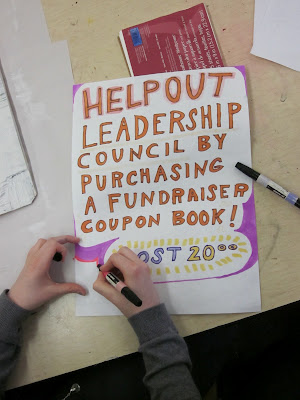 HELP OUT
LEADERSHIP
COUNCIL BY
PURCHASING
A FUNDRAISER
COUPON BOOK!
COST 20⁰⁰